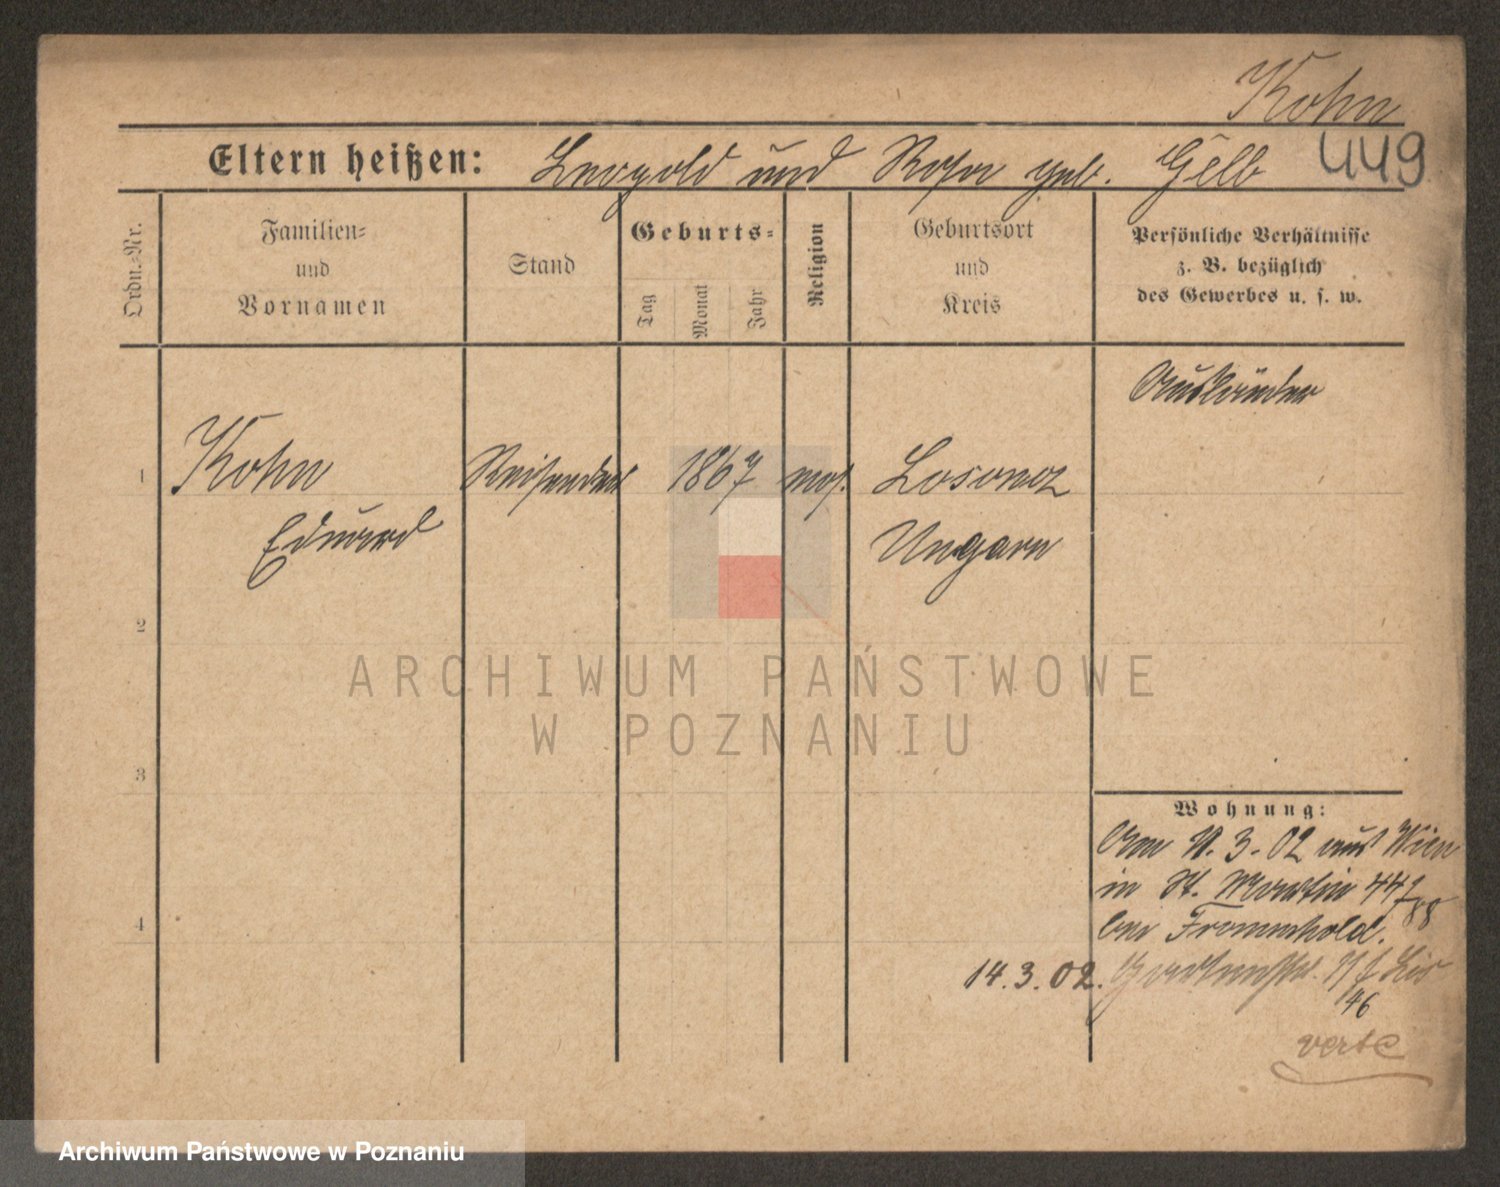 Kohn
449
Eltern heißen: Leopold und Rosa geb. Gelb
Ordn.-Nr.
Familien-
und
Vornamen
Stand
Geburts-
Tag
Monat
Jahr
Religion
Geburtsort
und
Kreis
Persönliche Verhältnisse
z. B. bezüglich
des Gewerbes u. s. w.
Ausländer
1 Kohn Reisender 1867 mos. Losoncz
Eduard Ungarn
2
ARCHIWUM PAŃSTWOWE
W POZNANIU
3
Wohnung:
Am 11.3.02 aus Wien
in St. Martin
4
bei Frommhold.
14.3.02. Gartenstr.
46
verte
Archiwum Państwowe w Poznaniu